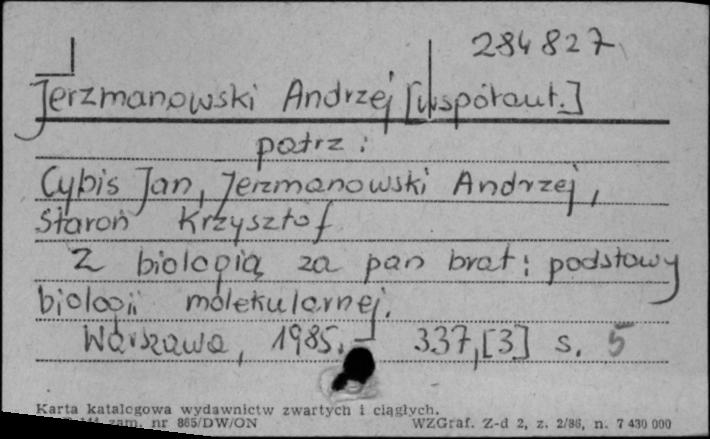 284827
Jerzmanowski Andrzej [współaut.]
patrz:
Cybis Jan, Jerzmanowski Andrzej,
Staroń Krzysztof
Z biologią za pan brat: podstawy
biologii molekularnej.
Warszawa, 1985. - 337,[3] s. 5
Karta katalogowa wydawnictw zwartych i ciągłych.
zam. nr 865/DW/ON WZGraf. Z-d 2, z. 2/86, n. 7 430 000